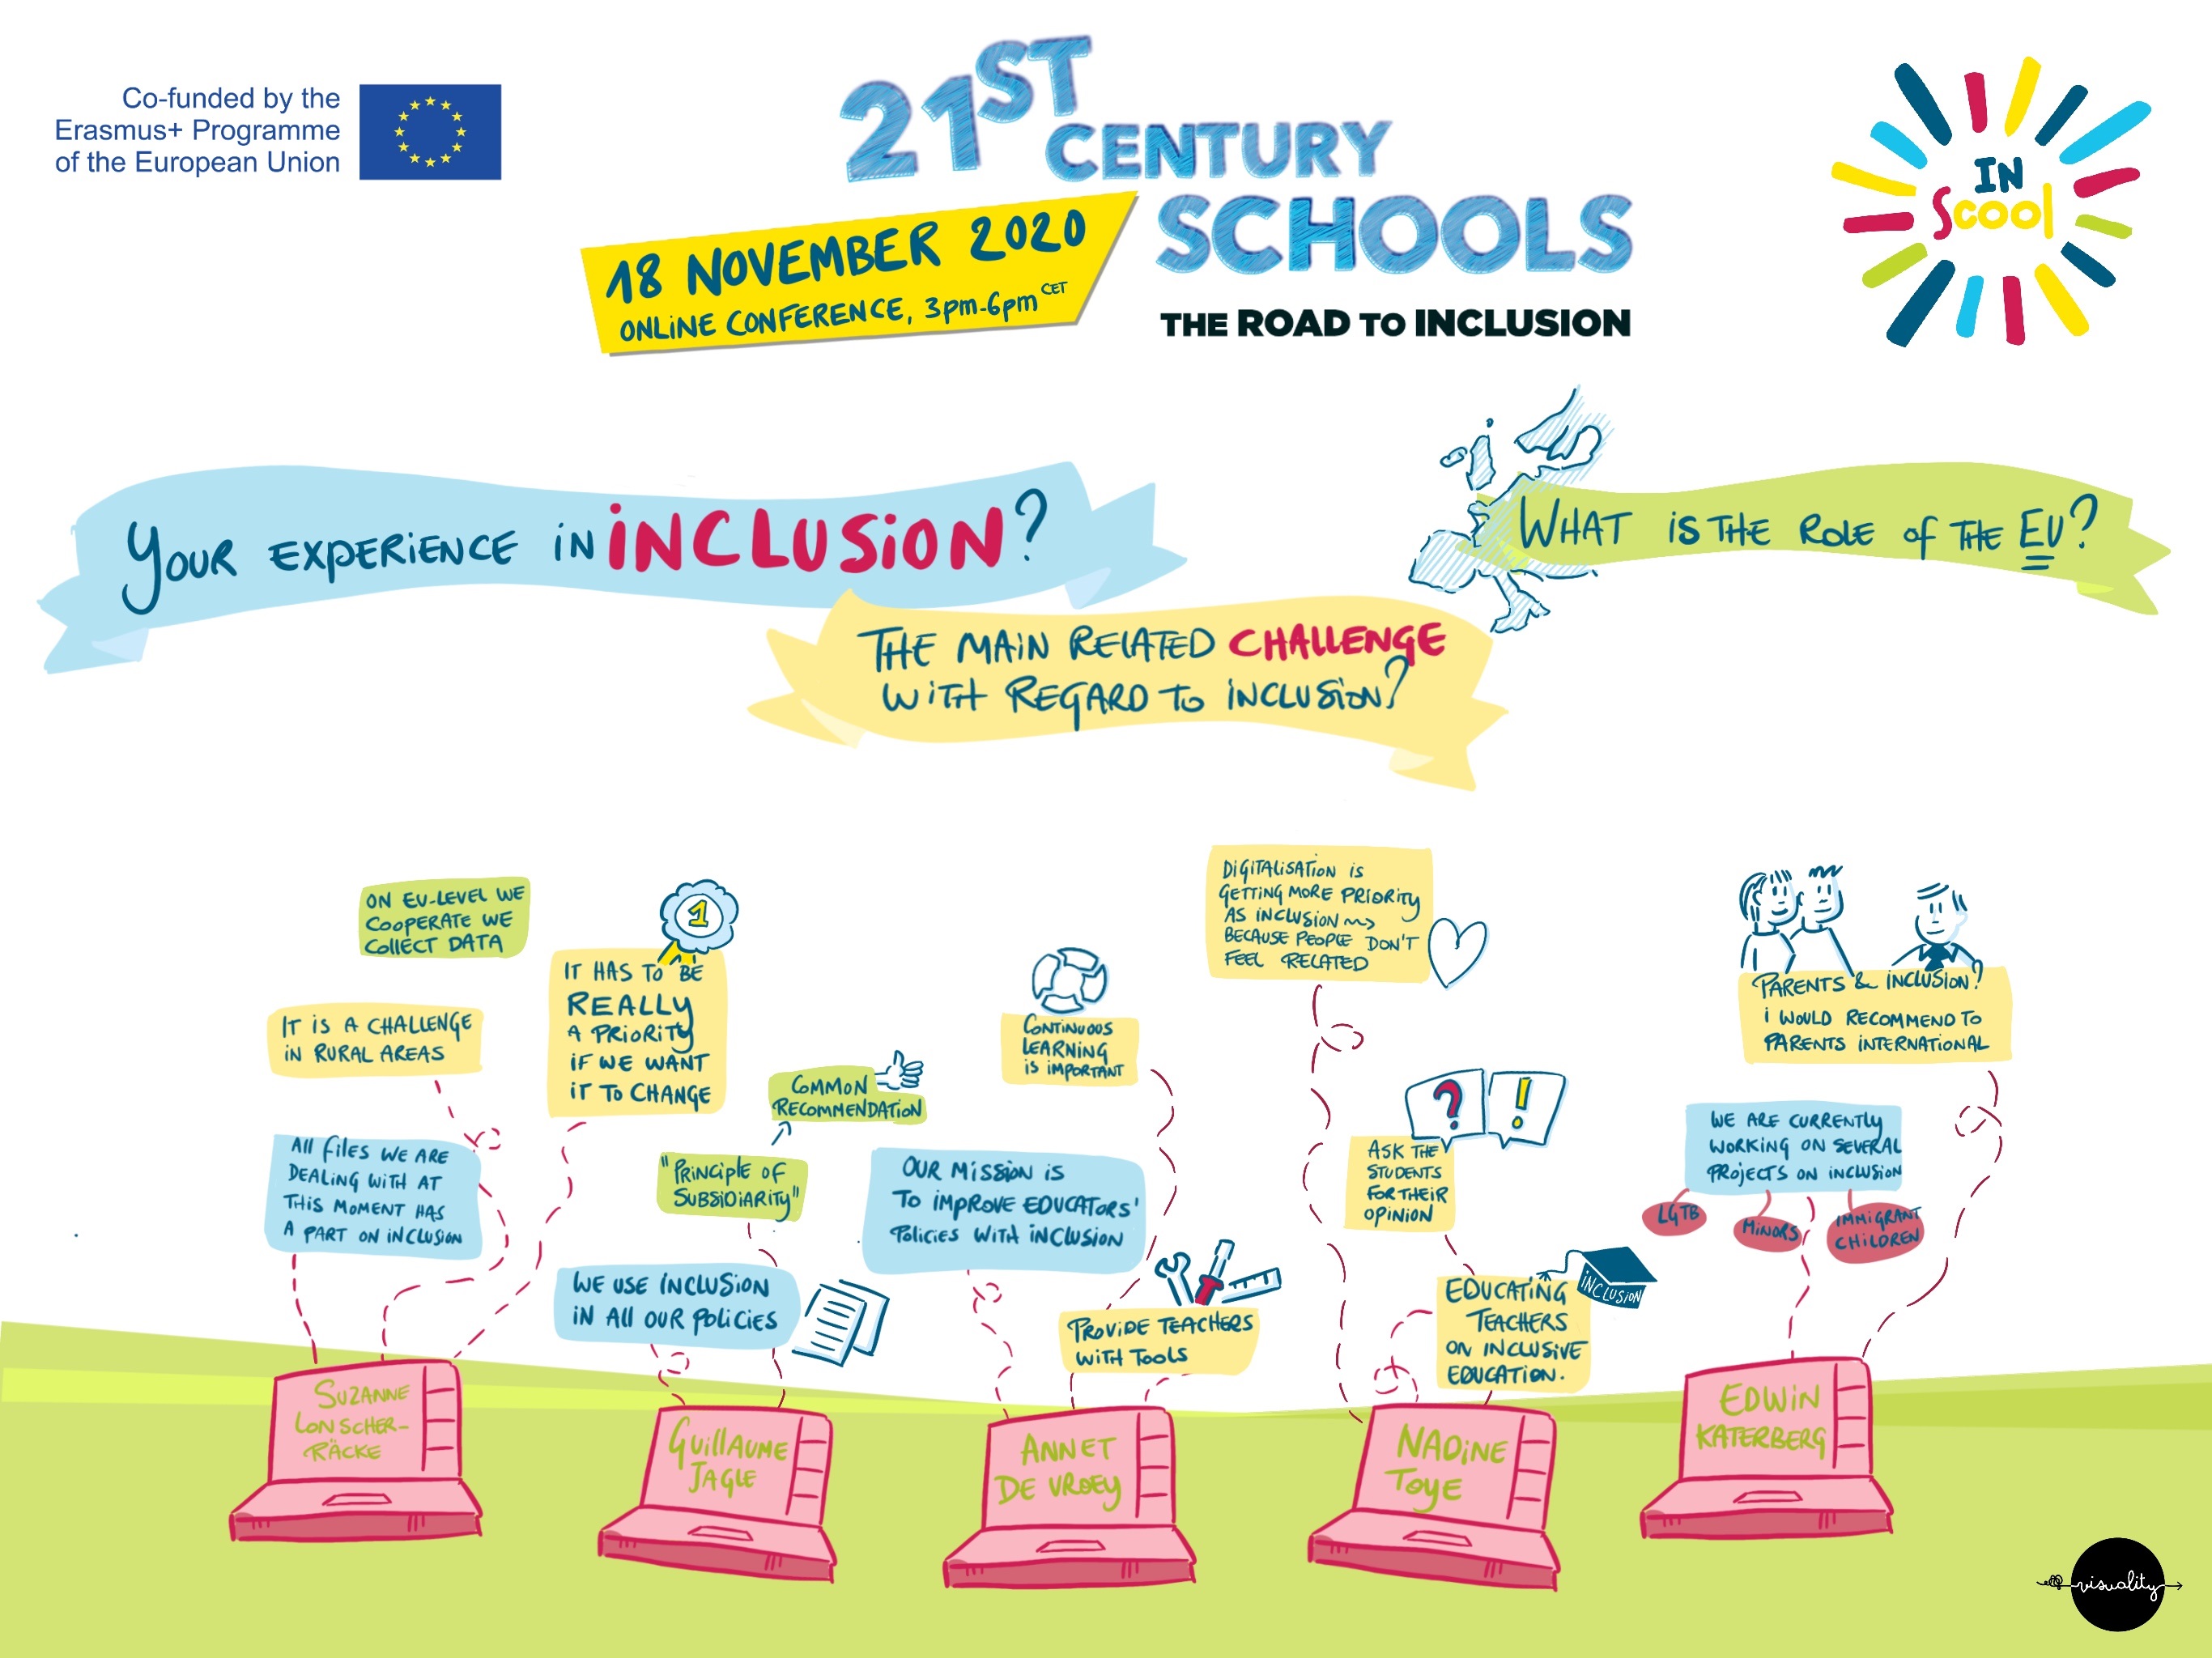 Co-funded by the
Erasmus+ Programme
of the European Union
21ST
CENTURY
SCHOOLS
THE ROAD TO INCLUSION
18 NOVEMBER 2020
ONLINE CONFERENCE, 3pm-6pm CET
IN
Scool
YOUR EXPERIENCE IN INCLUSION?
WHAT IS THE ROLE OF THE EU?
THE MAIN RELATED CHALLENGE
WITH REGARD TO INCLUSION?
ON EU-LEVEL WE
COOPERATE WE
COLLECT DATA
IT IS A CHALLENGE
IN RURAL AREAS
ALL FILES WE ARE
DEALING WITH AT
THIS MOMENT HAS
A PART ON INCLUSION
1
IT HAS TO BE
REALLY
A PRIORITY
IF WE WANT
IT TO CHANGE
COMMON
RECOMMENDATION
"PRINCIPLE OF
SUBSIDIARITY"
WE USE INCLUSION
IN ALL OUR POLICIES
CONTINUOUS
LEARNING
IS IMPORTANT
OUR MISSION IS
TO IMPROVE EDUCATORS'
POLICIES WITH INCLUSION
PROVIDE TEACHERS
WITH TOOLS
DIGITALISATION IS
GETTING MORE PRIORITY
AS INCLUSION
BECAUSE PEOPLE DON'T
FEEL RELATED
? !
ASK THE
STUDENTS
FOR THEIR
OPINION
INCLUSION
EDUCATING
TEACHERS
ON INCLUSIVE
EDUCATION.
PARENTS & INCLUSION?
I WOULD RECOMMEND TO
PARENTS INTERNATIONAL
WE ARE CURRENTLY
WORKING ON SEVERAL
PROJECTS ON INCLUSION
LGTB
MINORS
IMMIGRANT
CHILDREN
SUZANNE
LONSCHER-
RÄCKE
GUILLAUME
JAGLE
ANNET
DE VROEY
NADINE
TOYE
EDWIN
KATERBERG
visuality